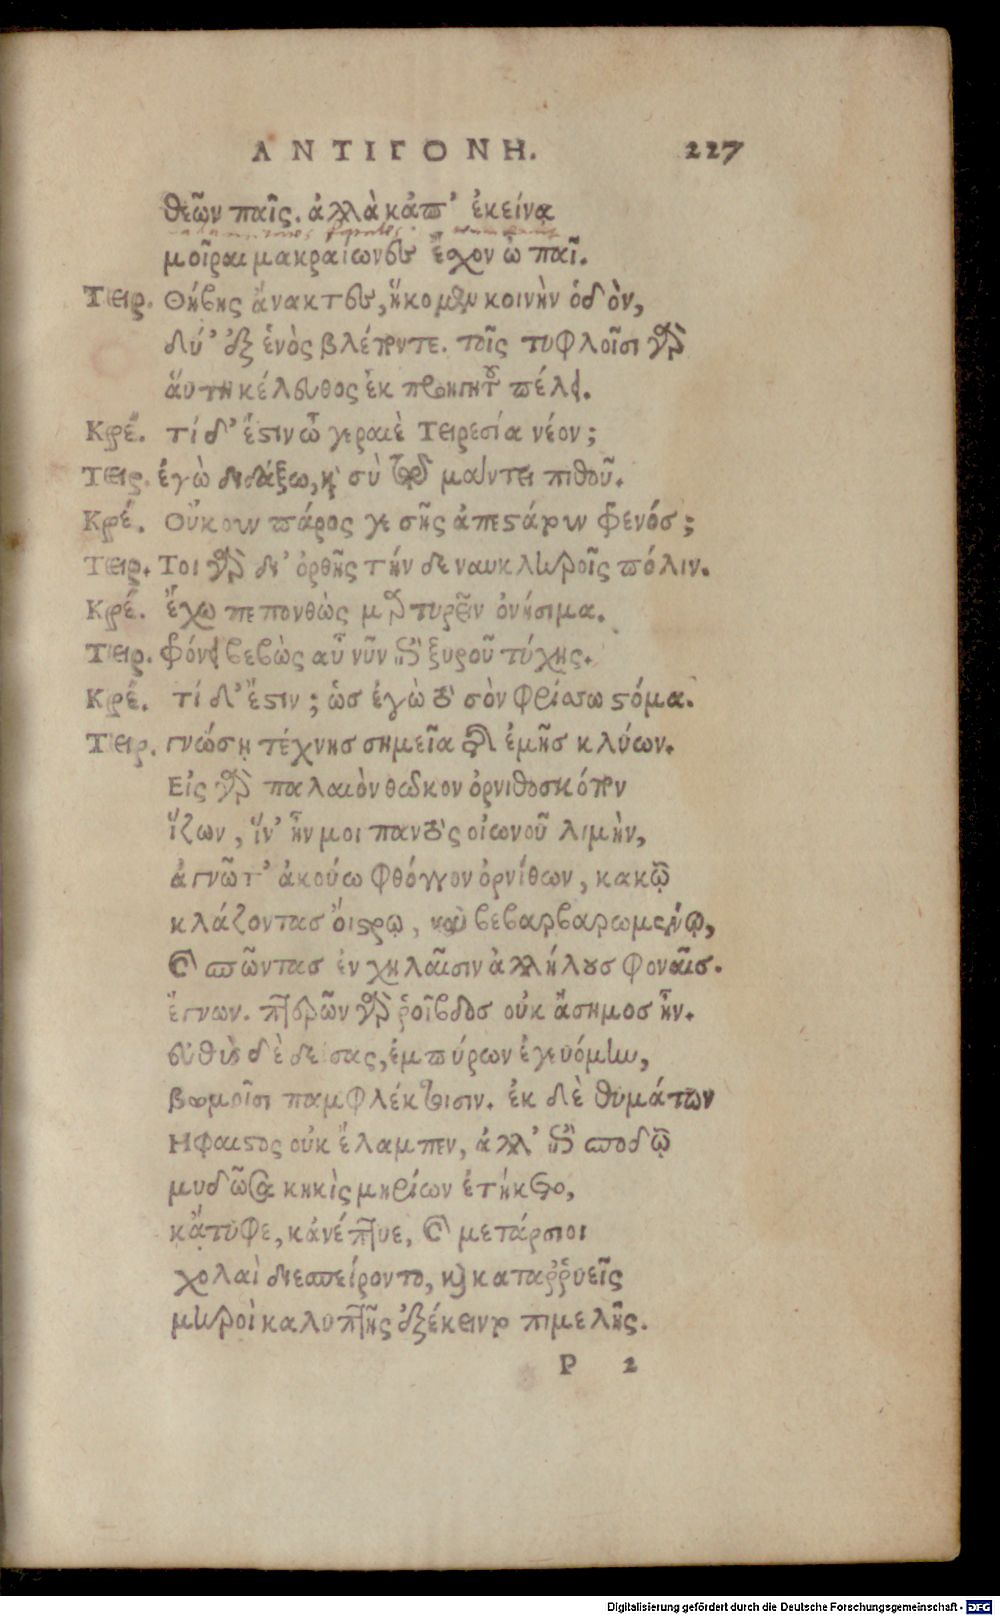 ΑΝΤΙΓΟΝΗ. 227
θεῶν παῖς. ἀλλὰ κἀπ' ἐκείνᾳ
μοῖραι μακραίωνες ἔσχον ὦ παῖ.
Τειρ. Θήβης ἄνακτες, ἥκομεν κοινὴν ὁδὸν,
δύ' ἐξ ἑνὸς βλέποντε. τοῖς τυφλοῖσι γὰρ
ἅυτη κέλευθος ἐκ προηγητοῦ πέλει.
Κρέ. τί δ' ἔστιν ὦ γεραιὲ Τειρεσία νέον;
Τειρ. ἐγὼ διδάξω, καὶ σὺ τῷ μάντει πιθοῦ.
Κρέ. Οὔκουν πάρος γε σῆς ἀπεστάτουν φρενός;
Τειρ. Τοι γὰρ δι' ὀρθῆς τήν δε ναυκληροῖς πόλιν.
Κρέ. ἔχω πεπονθὼς μαρτυρεῖν ὀνήσιμα.
Τειρ. φρόνει βεβὼς αὖ νῦν ἐπὶ ξυροῦ τύχης.
Κρέ. τί δ' ἔστιν; ὡσ ἐγὼ τὸ σὸν φρίσσω στόμα.
Τειρ. γνώσῃ τέχνησ σημεῖα τῆς ἐμῆσ κλύων.
Εἰς γὰρ παλαιὸν θῶκον ὀρνιθοσκόπον
ἵζων, ἵν' ἦν μοι παντὸς οἰωνοῦ λιμὴν,
ἀγνῶτ' ἀκούω φθόγγον ὀρνίθων, κακῷ
κλάζοντασ ὄιστρῳ, καὶ βεβαρβαρωμένῳ,
καὶ σπῶντασ ἐν χηλαῖσιν ἀλλήλουσ φοναῖσ.
ἔγνων. πτερῶν γὰρ ῥοῖβδοσ οὐκ ἄσημοσ ἦν.
εὐθὺς δὲ δείσας, ἐμπύρων ἐγευόμην,
βωμοῖσι παμφλέκτοισιν. ἐκ δὲ θυμάτων
Ηφαιστος οὐκ ἔλαμπεν, ἀλλ' ἐπὶ σποδῷ
μυδῶσα κηκὶς μηρίων ἐτήκετο,
κᾄτυφε, κἀνέπτυε, καὶ μετάρσιοι
χολαὶ διεσπείροντο, καὶ καταῤῥυεῖς
μηροὶ καλυπτῆς ἐξέκειντο πιμελῆς.
P 2
Digitalisierung gefördert durch die Deutsche Forschungsgemeinschaft - DFG